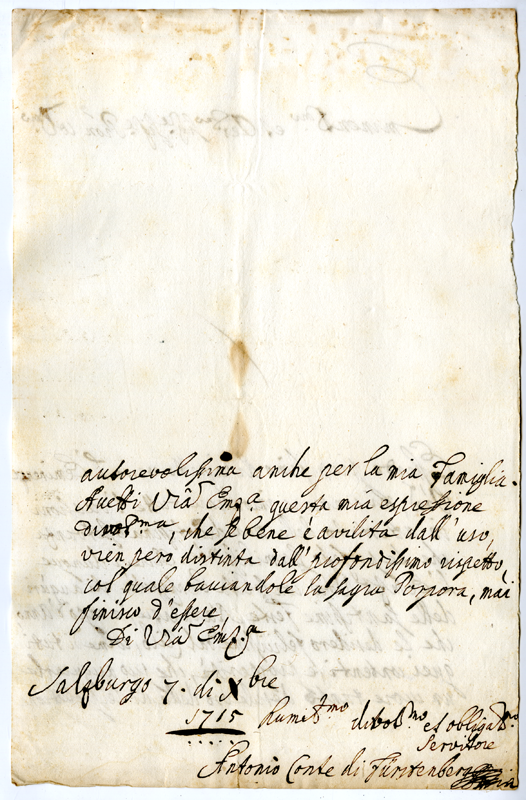 autorevolissima anche per la mia Famiglia.
Avetti Vrã Emza questa mia espressione
divotma, che se bene è avilita dall'uso,
vien però distinta dall'profondissimo rispetto,
col quale bacciandole la sagra Porpora, mai
finisco d'essere
Di Vrã Emza
Salzburgo 7. di Xbre
1715
humilmo divotmo et obligatmo
Servitore
Antonio Conte di Fürstenberg